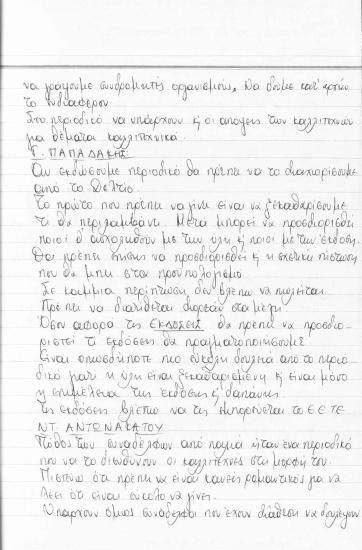 να γράψουμε συνδρομητές οργανισμούς. Να δούμε κατ' αρχήν
το ενδιαφέρον
Στο περιοδικό να υπάρχουν κ οι απόψεις των καλλιτεχνών
για θέματα καλλιτεχνικά.
Γ. ΠΑΠΑΔΑΚΗΣ:
Αν εκδώσουμε περιοδικό θα πρέπει να το διαχωρίσουμε
από το Δελτίο.
Το πρώτο που πρέπει να γίνει είναι να ξεκαθαρίσουμε
τι θα περιλαμβάνει. Μετά μπορεί να προσδιορισθεί
ποιοί θ' ασχοληθούν με την ύλη κ ποιοι με την έκδοση.
Θα πρέπει επίσης να προσδιορισθεί κ η σχετική πίστωση
που θα μπει στον προϋπολογισμό
Σε καμμιά περίπτωση δεν βλέπω να πωλείται.
Πρέπει να διατίθεται δωρεάν στα μέλη.
Όσον αφορά τις ΕΚΔΟΣΕΙΣ θα πρέπει να προσδιο-
ριστεί τι εκδόσεις θα πραγματοποιήσουμε
Είναι οπωσδήποτε πιο εύκολη δουλειά από το περιο-
δικό γιατί η ύλη είναι ξεκαθαρισμένη κ είναι μόνο
η επιμέλεια της έκδοσης κ δαπάνης.
Τις εκδόσεις βλέπω να τις εμπορεύεται το ΕΕΤΕ.
ΝΤ. ΑΝΤΩΝΑΚΑΤΟΥ
Πόθος των συναδέλφων από παλιά ήταν ένα περιοδικό
που να το διευθύνουν οι καλλιτέχνες στη μορφή του.
Πιστεύω ότι πρέπει να είναι κανείς ρομαντικός για να
λέει ότι είναι εύκολο να γίνει.
Υπάρχουν όμως συνάδελφοι που έχουν διάθεση να δουλέψουν